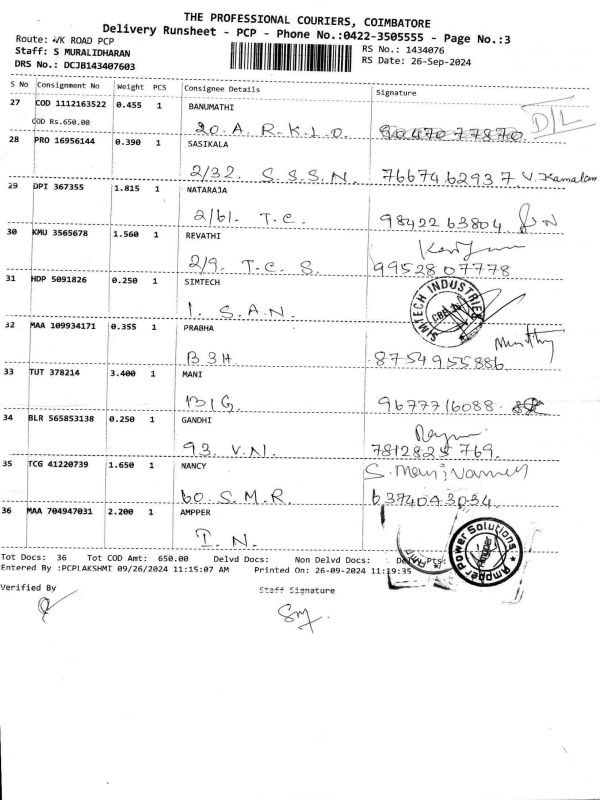 THE PROFESSIONAL COURIERS, COIMBATORE
Delivery Runsheet - PCP - Phone No.:0422-3505555 - Page No.:3
Route: VK ROAD PCP
RS No.: 1434076
Staff: S MURALIDHARAN
RS Date: 26-Sep-2024
DRS No.: DCJB143407603
S No Consignment No Weight PCS Consignee Details Signature
27 COD 1112163522 0.455 1 BANUMATHI
COD Rs.650.00 20. A. R. K. L. O. 9047077870 D/L
28 PRO 16956144 0.390 1 SASIKALA
2/32. S. S. S. N. 7667462937 V. Kamalam
29 DPI 367355 1.815 1 NATARAJA
2/61. T. C. 9842263804
30 KMU 3565678 1.560 1 REVATHI
2/9. T. C. S. 9952807778
31 HDP 5091826 0.250 1 SIMTECH
1. S. A. N. SIMTECH INDUSTRIES
32 MAA 109934171 0.355 1 PRABHA
B 3H 8754955886
33 TUT 378214 3.400 1 MANI
B1G. 9677716088
34 BLR 565853138 0.250 1 GANDHI
93. V. N. 7812825769.
35 TCG 41220739 1.650 1 NANCY
60. S. M. R. 6374093034
36 MAA 704947031 2.200 1 AMPPER
I. N. Ampper Power Solutions
Tot Docs: 36 Tot COD Amt: 650.00 Delvd Docs: Non Delvd Docs: Delvy Pts:
Entered By :PCPLAKSHMT 09/26/2024 11:15:07 AM Printed On: 26-09-2024 11:19:35
Verified By Staff Signature